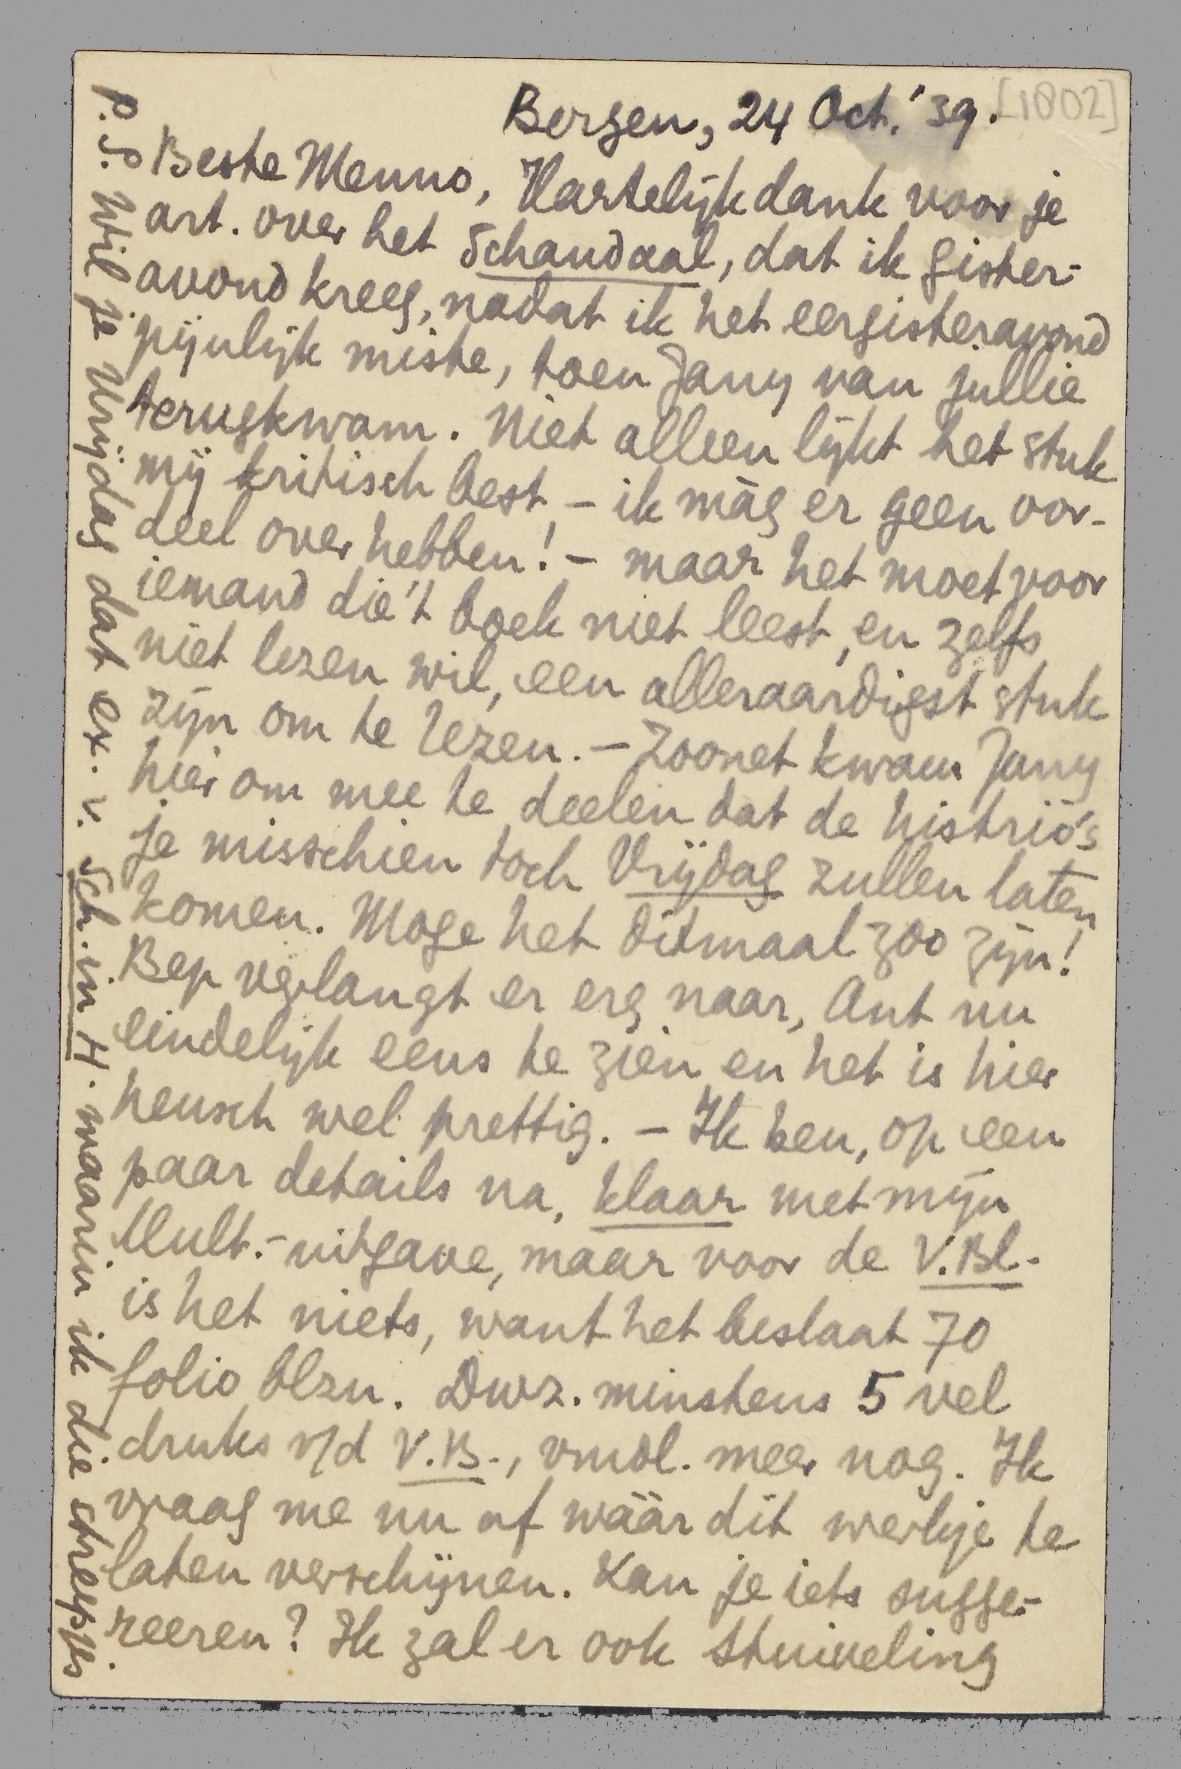 Bergen, 24 Oct. '39. [1802]
Beste Menno, Hartelijk dank voor je
art. over het Schandaal, dat ik gister-
avond kreeg, nadat ik het eergisteravond
pijnlijk miste, toen Jany van jullie
terugkwam. Niet alleen lijkt het stuk
mij kritisch best, – ik màg er geen oor-
deel over hebben! – maar het moet voor
iemand die 't boek niet leest, en zelfs
niet lezen wil, een alleraardigst stuk
zijn om te lezen. – Zoonet kwam Jany
hier om mee te deelen dat de histrio's
je misschien toch Vrijdag zullen laten
komen. Moge het ditmaal zoo zijn!
Bep verlangt er erg naar, Ant nu
eindelijk eens te zien en het is hier
heusch wel prettig. – Ik ben, op een
paar details na, klaar met mijn
Mult.-uitgave, maar voor de V.Bl.
is het niets, want het beslaat 70
folio blzn. Dwz. minstens 5 vel
druks v/d V.B., vmdl. meer nog. Ik
vraag me nu af wáár dit werkje te
laten verschijnen. Kan je iets sugge-
reeren? Ik zal er ook Stuiveling
P.S. Wil je Vrijdag dat ex. v. Sch. in H. waarin ik die streepjes